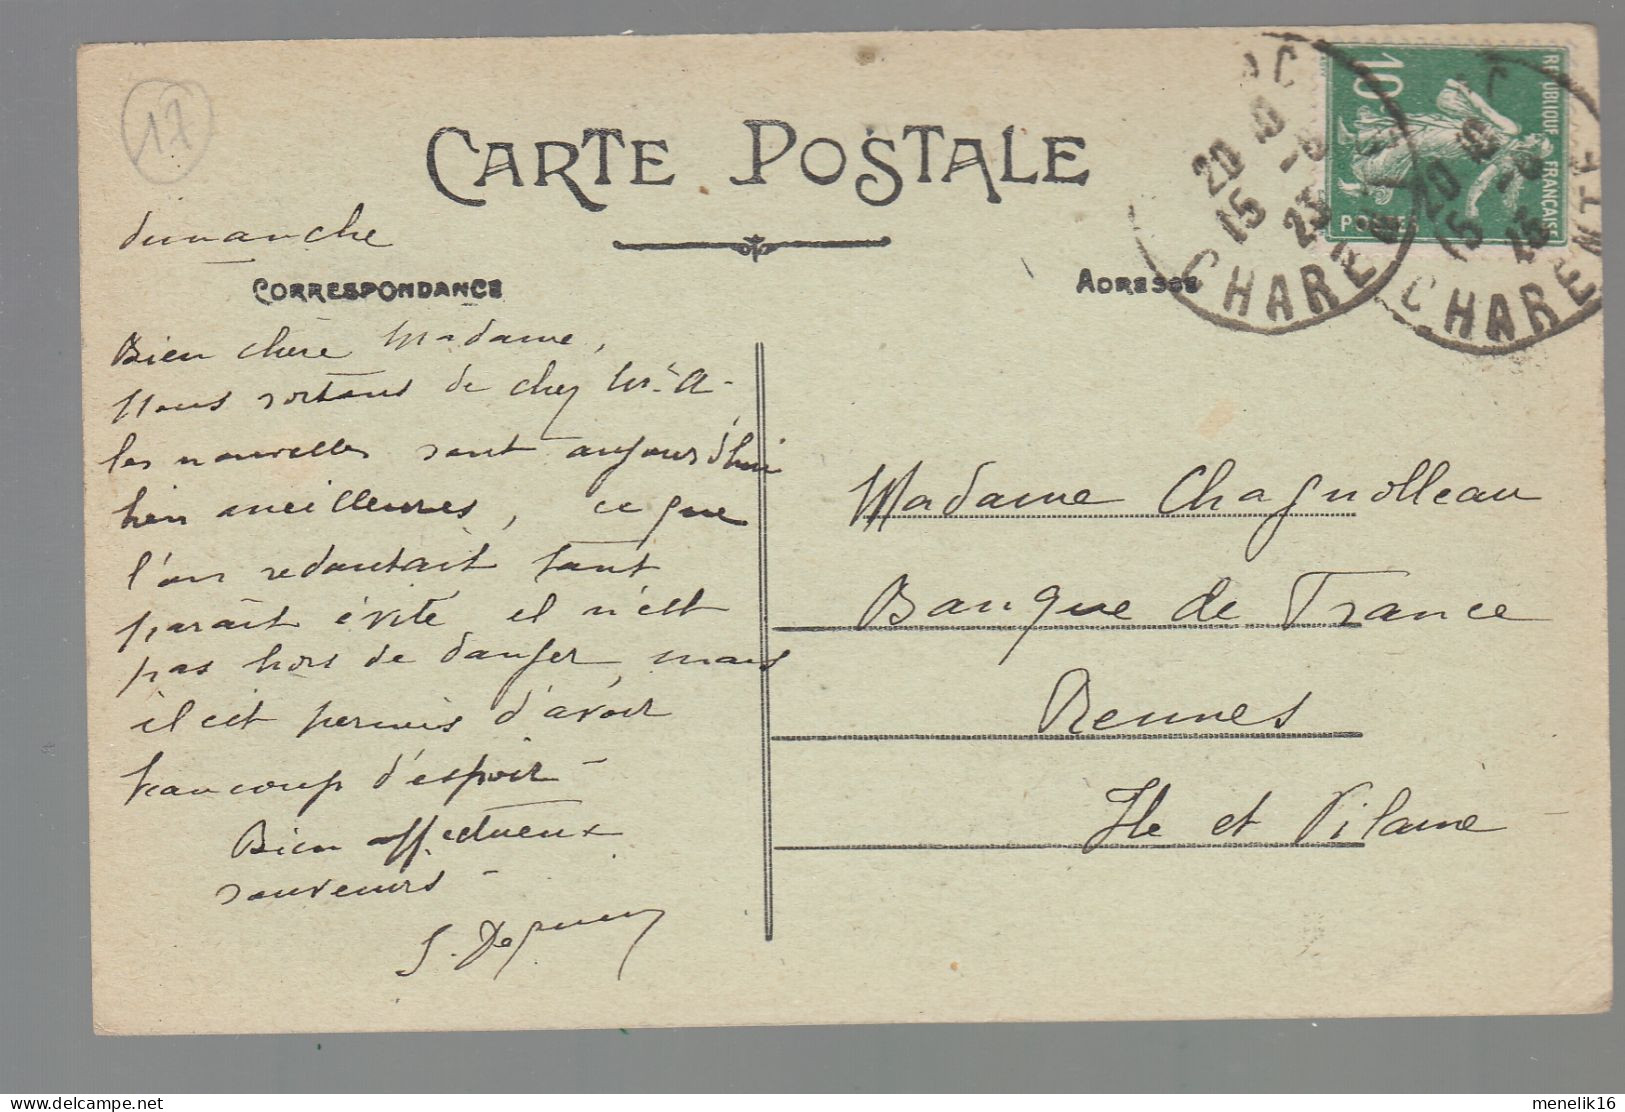 17
CARTE POSTALE
dimanche
CORRESPONDANCE
Bien chère Madame,
Nous sortons de chez Mr A-
les nouvelles sont aujourd'hui
bien meilleures, ce que
l'on redoutait tant
paraît évité, il n'est
pas hors de danger, mais
il est permis d'avoir
beaucoup d'espoir -
Bien affectueux
souvenirs -
ADRESSE
Madame Chagnolleau
Banque de France
Rennes
Ile et Vilaine
10
REPUBLIQUE FRANCAISE
POSTES
20 10
15 -6
23
CHARENTE
20 10
15 -6
23
CHARENTE
delcampe.net
menelik16